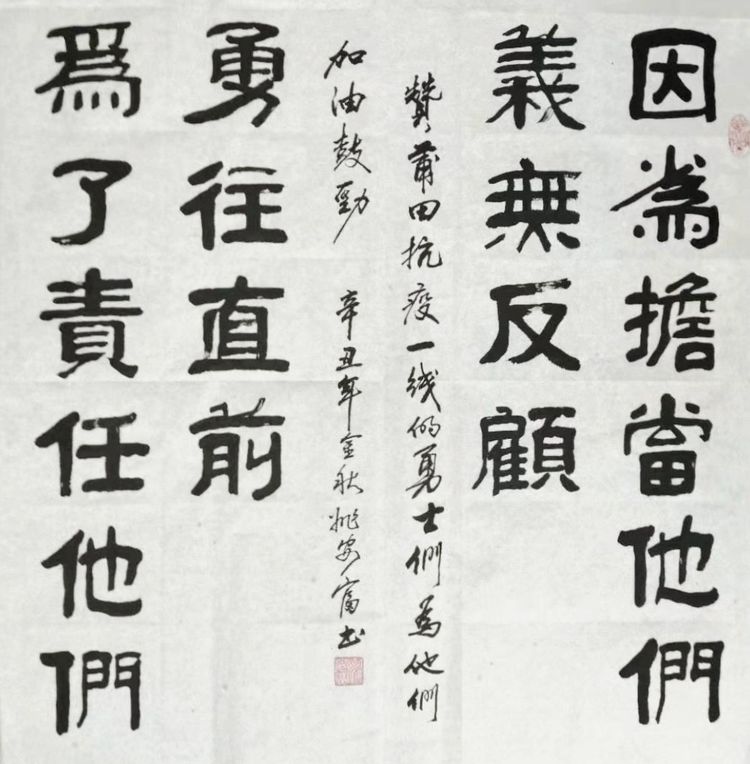 因為擔當他們
義無反顧
爲了責任他們
勇往直前
贊莆田抗疫一线的勇士們为他們
加油鼓勁 辛丑年金秋姚安富书